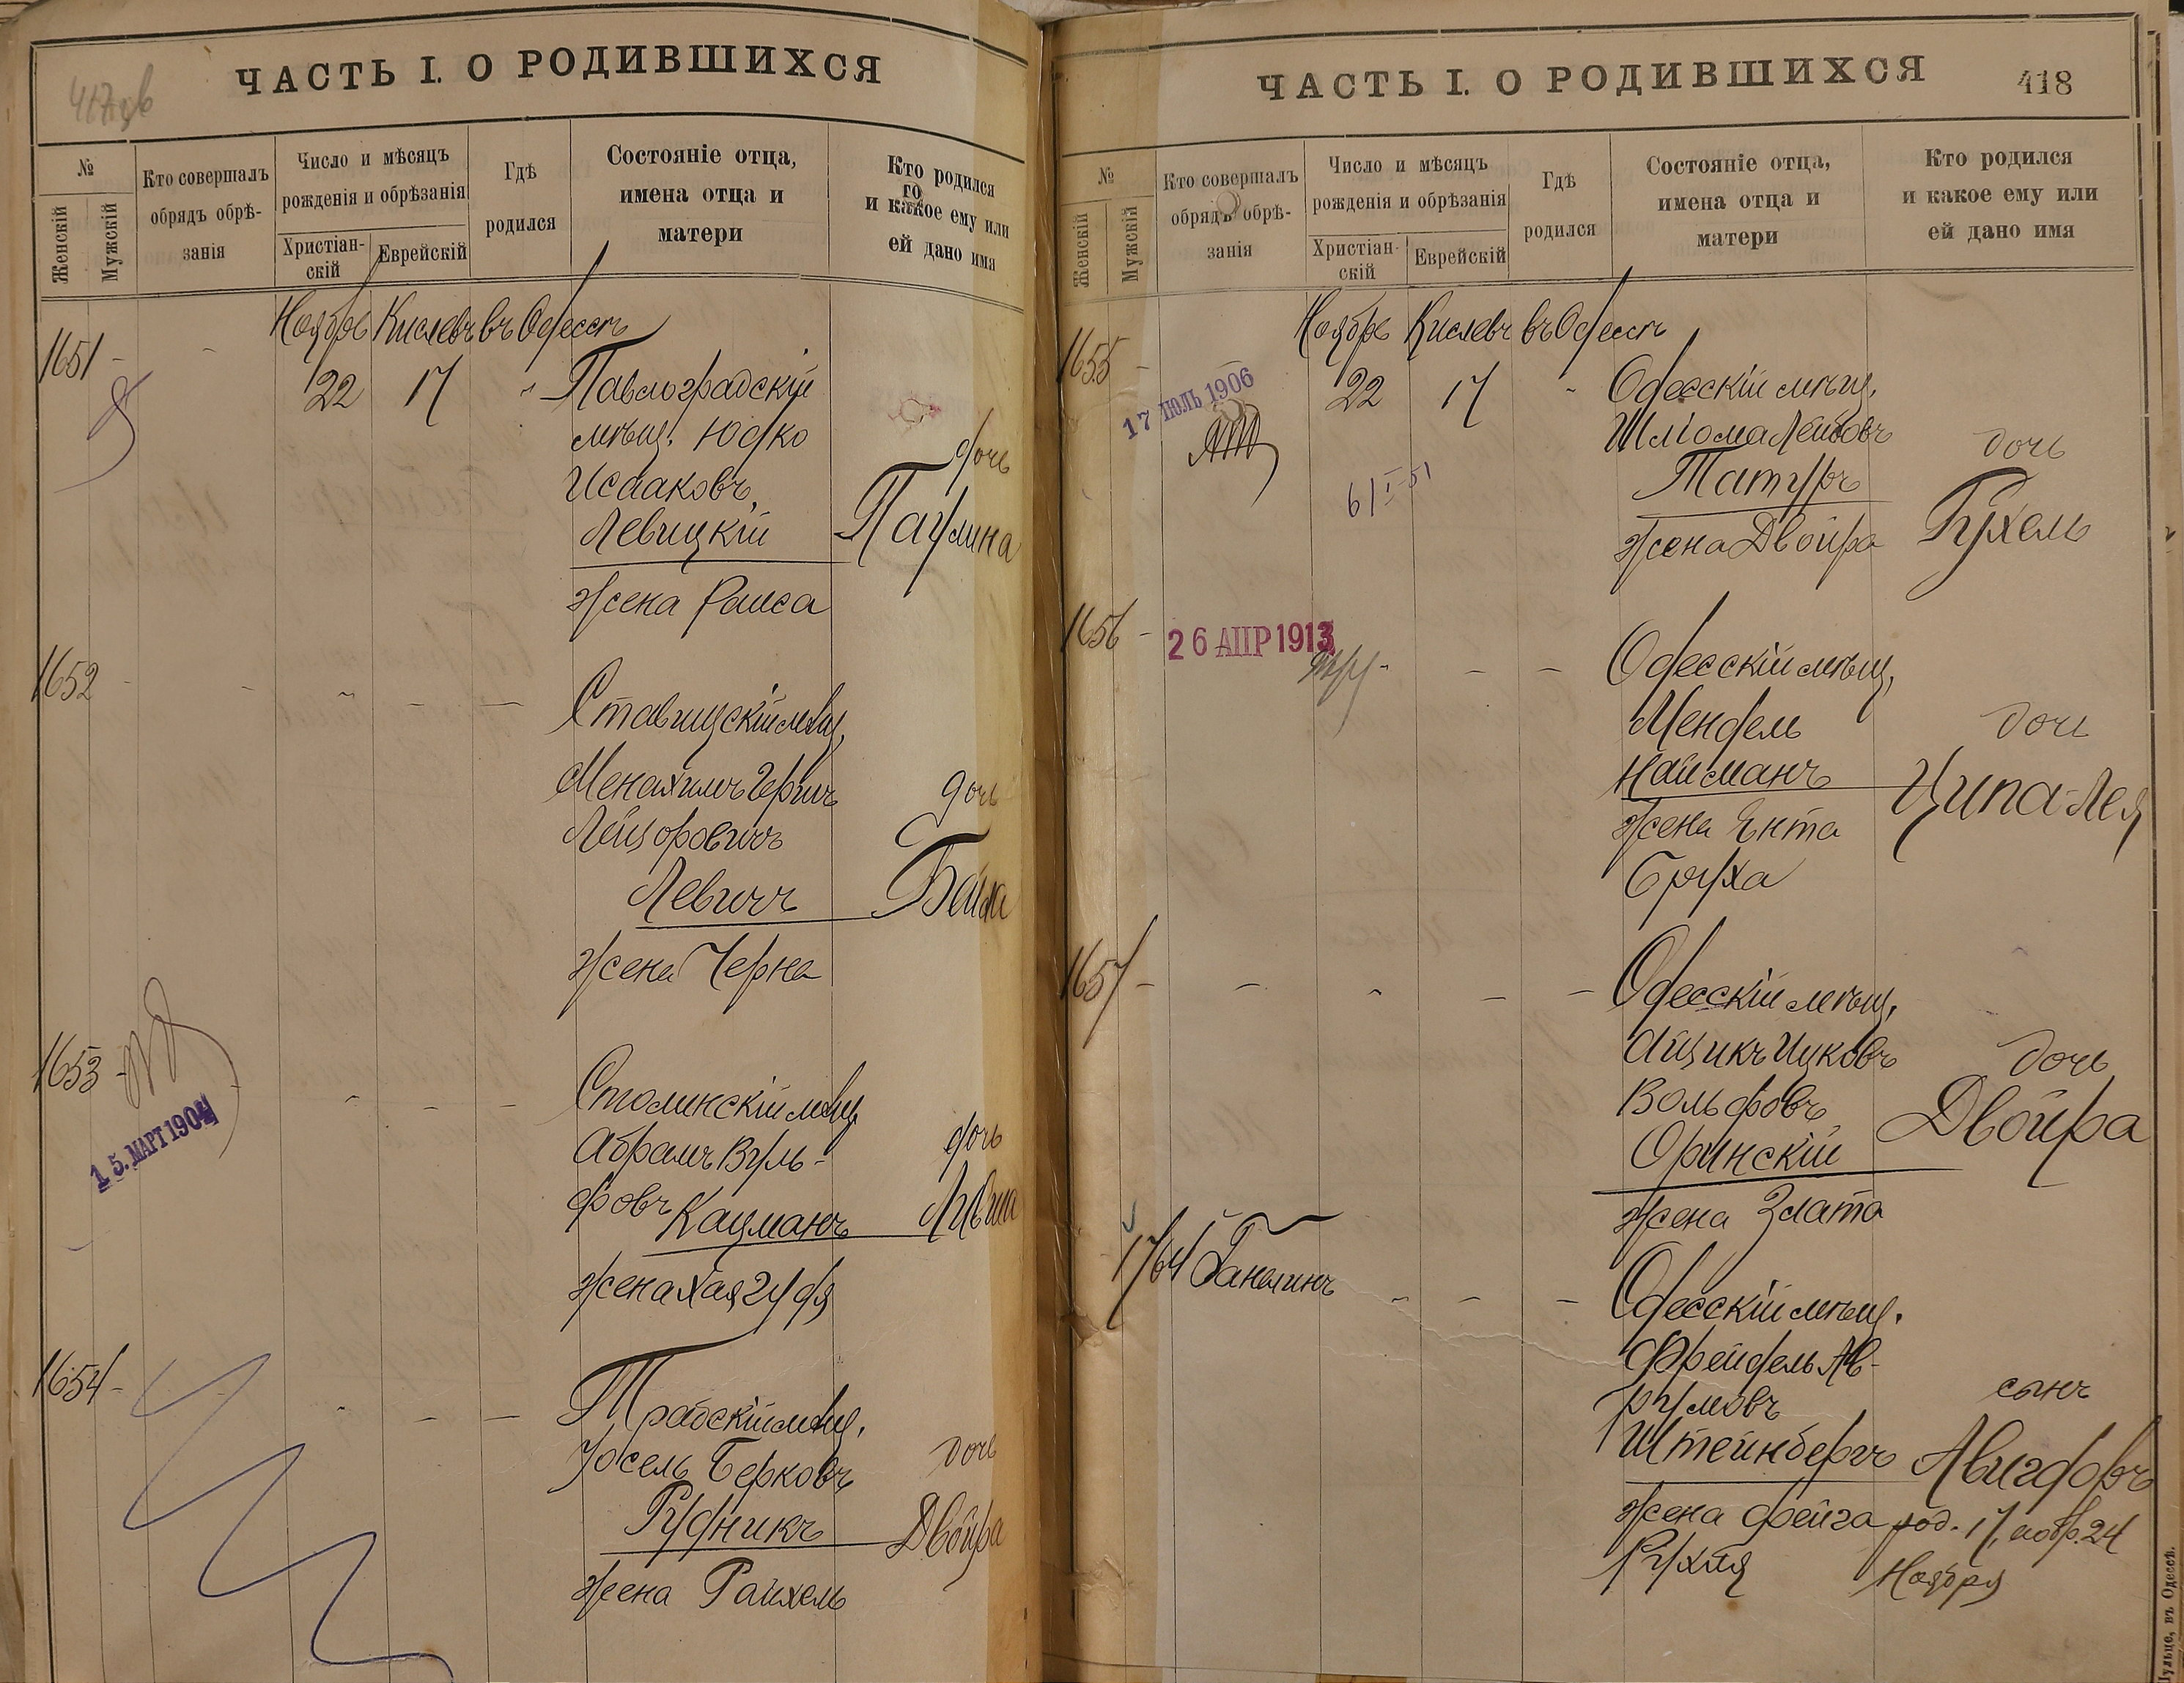 417об
ЧАСТЬ I. О РОДИВШИХСЯ
№
Женскій
Мужскій
Кто совершалъ
обрядъ обрѣ-
занія
Число и мѣсяцъ
рожденія и обрѣзанія
Христіан-
скій
Еврейскій
Гдѣ
родился
Состояніе отца,
имена отца и
матери
Кто родился
и какое ему или
ей дано имя
Ноябрь Кислевъ въ Одессѣ
1651 -
22 17 "
Павлоградскій
мѣщ. Юдко
Исааковъ
Левицкій
жена Раиса
дочь
Паулина
1652 -
Ставищскій мѣщ,
Менахимъ Гершъ
Лейзоровичъ
Левичъ
жена Черна
дочь
Бейла
1653 -
15. МАРТ 1904
Столинскій мѣщ.
Абрамъ Вуль-
фовъ Кацманъ
жена Хая Гудя
дочь
1654 -
Трабскій мѣщ.
Іосель Берковъ
Рудникъ
жена Райхель
дочь
Двойра
ЧАСТЬ I. О РОДИВШИХСЯ
418
№
Женскій
Мужскій
Кто совершалъ
обрядъ обрѣ-
занія
Число и мѣсяцъ
рожденія и обрѣзанія
Христіан-
скій
Еврейскій
Гдѣ
родился
Состояніе отца,
имена отца и
матери
Кто родился
и какое ему или
ей дано имя
Ноябрь Кислевъ въ Одессѣ
1655 -
17 ІЮЛЬ 1906
22 17 "
6/I-51
Одесскій мѣщ.
Шліома Лейбовъ
Татуръ
жена Двойра
дочь
Рухель
1656 -
26 АПР 1913
Одесскій мѣщ,
Мендель
Найманъ
жена Ента
Бруха
дочь
Ципа-Лея
1657 -
Одесскій мѣщ,
Айзикъ Ицковъ
Вольфовъ
Оринскій
жена Злата
дочь
Двойра
1764 Ганелинъ
Одесскій мѣщ.
Фрейдель Ав-
румовъ
Штейнбергъ
жена Фейга
Рухля
сынъ
Авигдоръ
род. 17, а обр. 24
Ноября
въ Одессѣ.